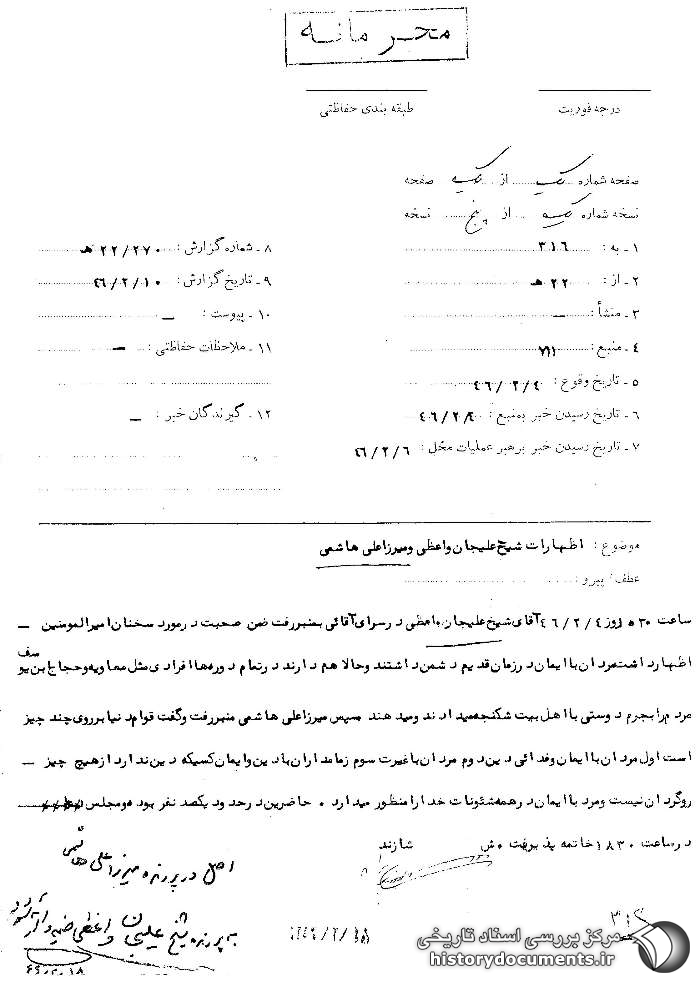 محرمانه
درجه فوریت
طبقه بندی حفاظتی
صفحه شماره یک از یک صفحه
نسخه شماره یک از پنج نسخه
۱ـ به : ۳۱۶
۲ـ از : ۲۲ هـ
۳ـ منشأ : ـ
۴ـ منبع : ۷۱۱
۵ـ تاریخ وقوع : ۴۶/۲/۴
۶ـ تاریخ رسیدن خبر بمنبع :
۷ـ تاریخ رسیدن خبر برهبر عملیات محل : ۴۶/۲/۶
۸ـ شماره گزارش : ۲۲/۲۷۰ هـ
۹ـ تاریخ گزارش : ۴۶/۲/۱۰
۱۰ـ پیوست : ـ
۱۱ـ ملاحظات حفاظتی : ـ
۱۲ـ گیرندگان خبر : ـ
موضوع : اظهارات شیخ علیجان واعظی و میرزاعلی هاشمی
عطف / پیرو :
ساعت روز ۴۶/۲/۴ آقای شیخ علیجان واعظی در سرای آقائی بمنبر رفت ضمن صحبت در مورد سخنان امیرالمومنین ـ
اظهار داشت مردان با ایمان در زمان قدیم دشمن داشتند و حالا هم دارند در تمام دوره‌ها افرادی مثل معاویه و حجاج ابن یوسف
مردم را بجرم دوستی با اهل بیت شکنجه میدادند و میدهند سپس میرزاعلی هاشمی منبر رفت و گفت قوام دنیا بر روی چند چیز
است اول مردان با ایمان و فدائی دین دوم مردان با غیرت سوم زمامداران با دین و ایمان کسیکه دین ندارد از هیچ چیز ـ
روگردان نیست و مرد با ایمان در همه شئونات خدا را منظور میدارد . حاضرین در حدود یکصد نفر بوده و مجلس
در ساعت ۱۸۳۰ خاتمه پذیرفت . ش شازند
اصل در پرونده میرزا علی هاشمی
به پرونده شیخ علیجان واعظی ضمیمه و
۳۱۶
مرکز بررسی اسناد تاریخی
historydocuments.ir